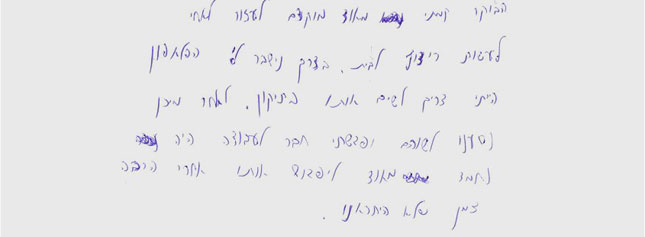 הבוקר קמתי מאוד מוקדם לעזור לאחי
לעשות ריצוף לבית. בצרק נישבר לי הפלאפון
הייתי צריך לשים אותו בתיקון. לאחר מיכן
נסענו לשוהם ופגשתי חבר לעבודה היה
נחמד מאוד ליפגוש אותו אחרי הרבה
זמן שלא היתראנו.